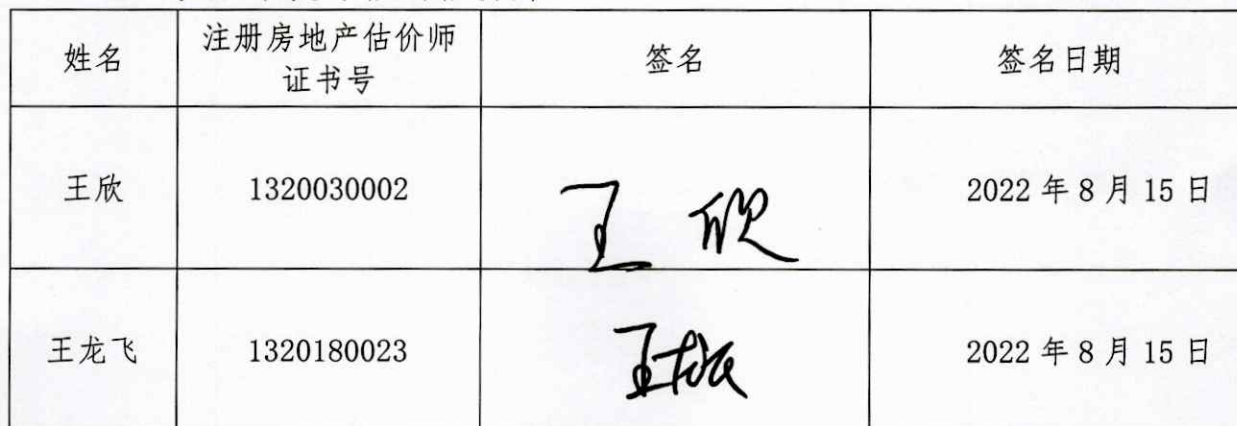 姓名
注册房地产估价师
证书号
签名
签名日期
王欣
1320030002
王欣
2022 年 8 月 15 日
王龙飞
1320180023
2022 年 8 月 15 日